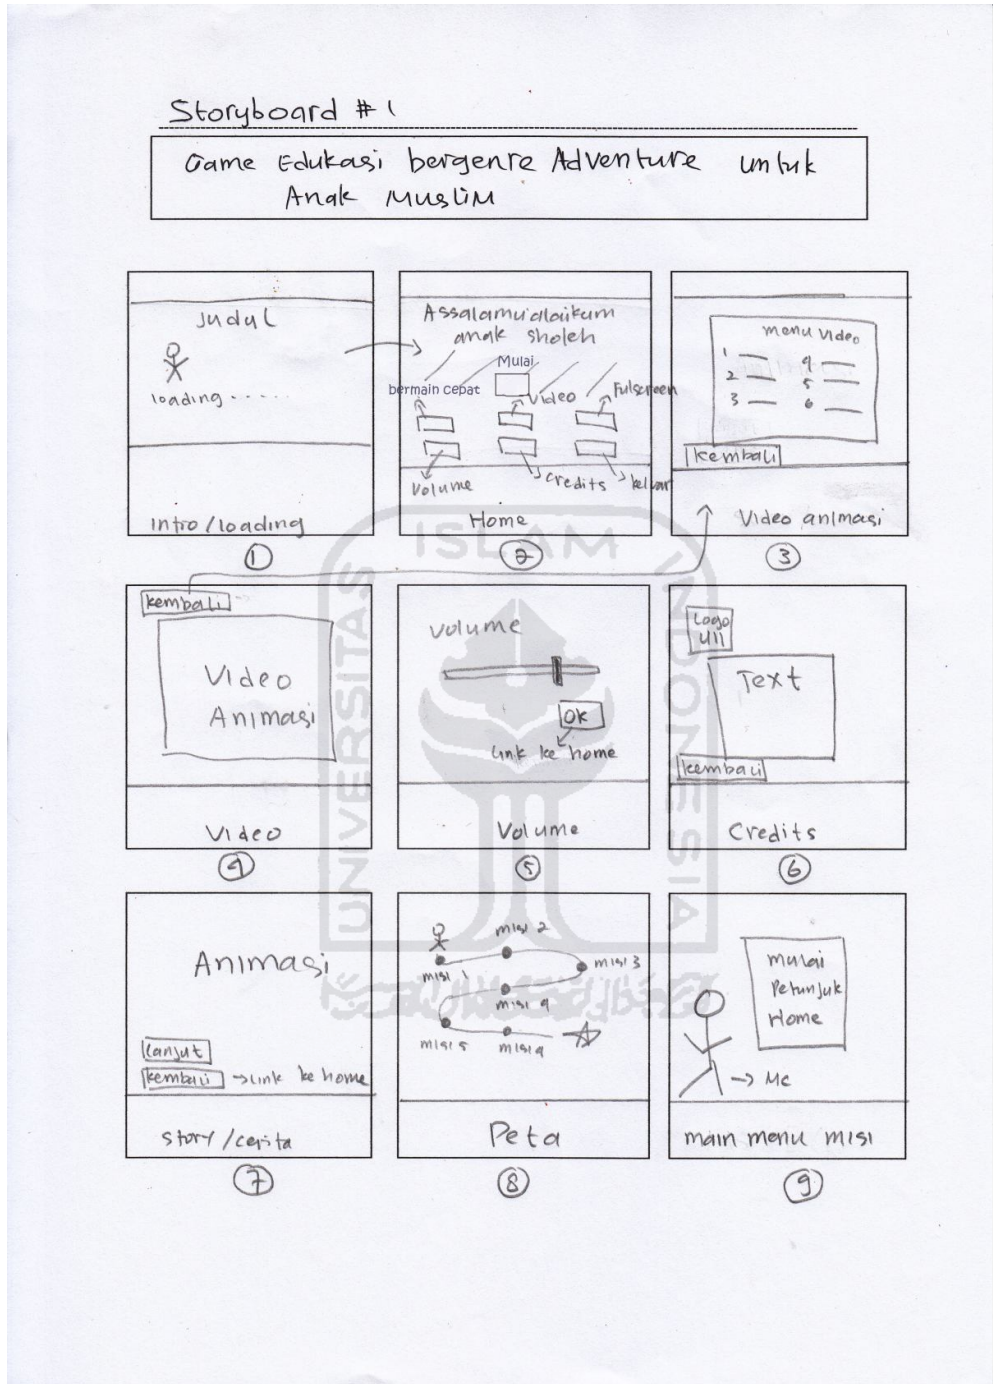 Storyboard # 1
Game Edukasi bergenre Adventure untuk
Anak Muslim
Judul
loading.....
Intro/loading
1
Assalamu'alaikum
anak sholeh
Mulai
bermain cepat
Video
Fulscreen
Volume
Credits
keluar
Home
2
menu video
1
2
3
4
5
6
kembali
Video animasi
3
kembali
Video
Animasi
Video
4
Volume
OK
link ke home
Volume
5
Logo
UII
Text
kembali
Credits
6
Animasi
Lanjut
kembali → link ke home
story/cerita
7
misi 1
misi 2
misi 3
misi 4
misi 5
misi 4
Peta
8
mulai
Petunjuk
Home
→ Mc
main menu misi
9
UNIVERSITAS
ISLAM
INDONESIA